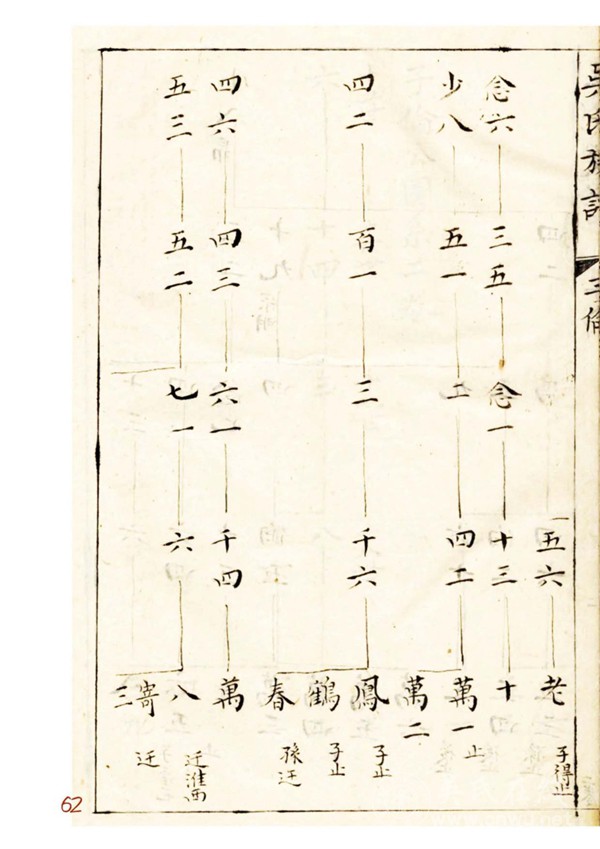 吳氏族譜
五六
老
子得止
念六
三五
念一
十三
十
少八
五一
二
四二
萬一
止
萬二
四二
百一
三
千六
鳳
子止
鶴
子止
春
孫迁
四六
四三
六一
千四
萬
五三
五二
七一
六
八
迁淮西
寄三
迁
62